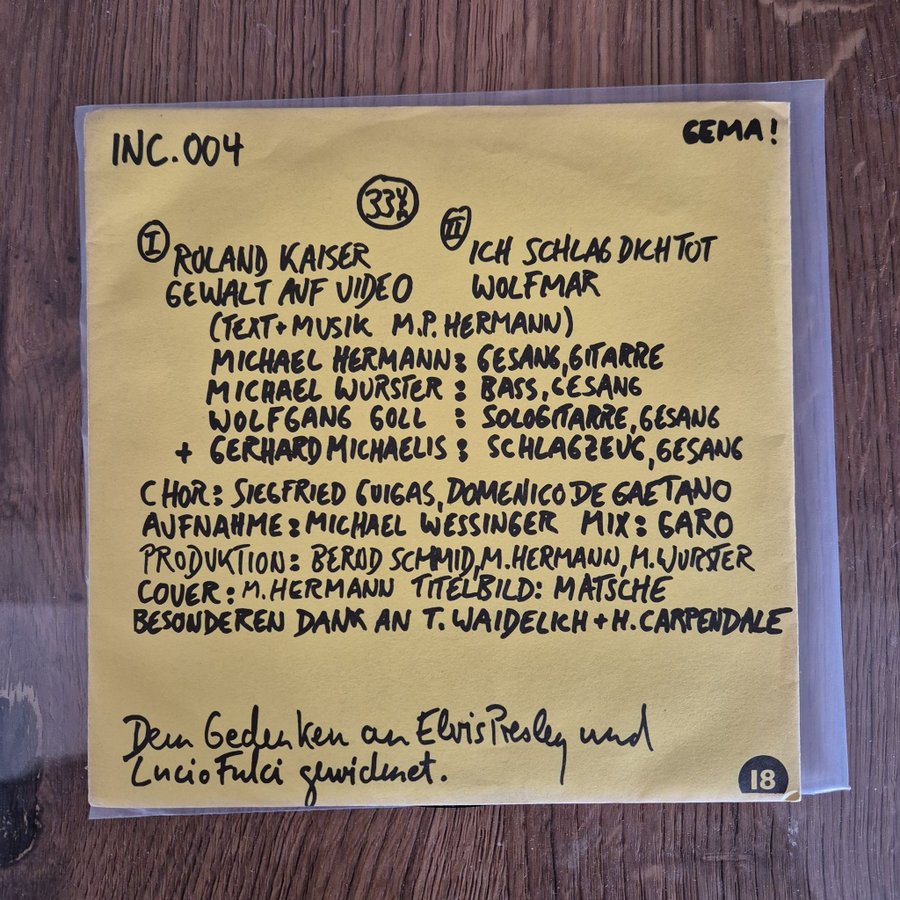 INC.004
GEMA!
33⅓
I ROLAND KAISER
GEWALT AUF VIDEO
II ICH SCHLAG DICH TOT
WOLFMAR
(TEXT+MUSIK M.P. HERMANN)
MICHAEL HERMANN: GESANG, GITARRE
MICHAEL WURSTER: BASS, GESANG
WOLFGANG GOLL : SOLOGITARRE, GESANG
+ GERHARD MICHAELIS: SCHLAGZEUG, GESANG
CHOR: SIEGFRIED GUIGAS, DOMENICO DE GAETANO
AUFNAHME: MICHAEL WESSINGER MIX: GARO
PRODUKTION: BERND SCHMID, M. HERMANN, M. WURSTER
COVER: M. HERMANN TITELBILD: MATSCHE
BESONDEREN DANK AN T. WAIDELICH + H. CARPENDALE
Dem Gedenken an Elvis Presley und
Lucio Fulci gewidmet.
18